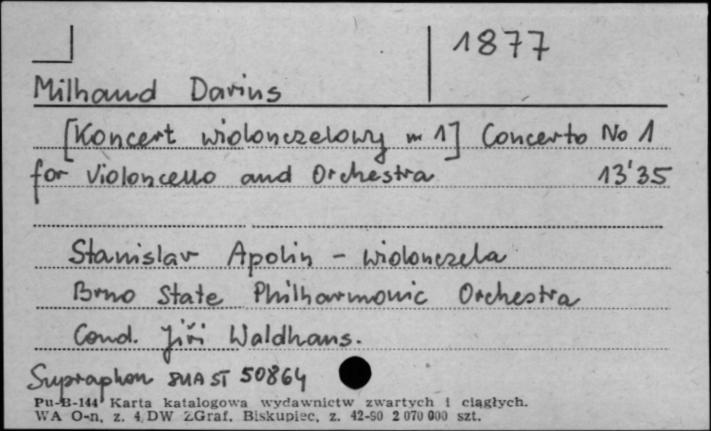 1877
Milhaud Darius
[Koncert wiolonczelowy nr 1] Concerto No 1
for Violoncello and Orchestra 13'35
Stanislav Apolin - wiolonczela
Brno State Philharmonic Orchestra
Cond. Jiří Waldhans.
Supraphon SUA ST 50864
Pu-B-144 Karta katalogowa wydawnictw zwartych i ciągłych.
WA O-n, z. 4 DW ZGraf. Biskupiec, z. 42-90 2 070 000 szt.